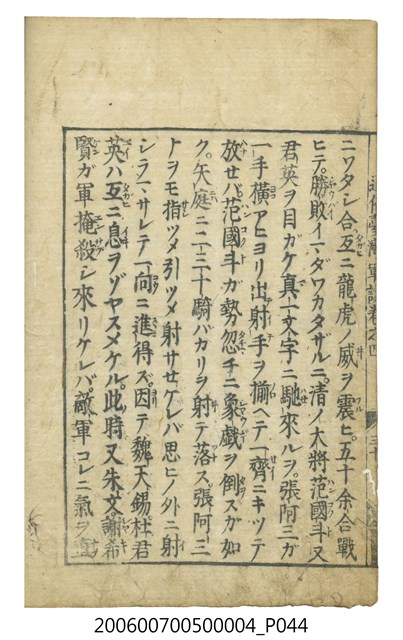 ニワタシ合互ニ龍虎ノ威ヲ震ヒ。五十余合戰
ヒテ。勝敗イマダワカタザルニ。清ノ大將范國斗又
君英ヲ目ガケ真一文字ニ馳來ルヲ。張阿三ガ
一手横アヒヨリ出。射手ヲ揃ヘテ一齊ニキツテ
放セバ范國斗ガ勢忽チニ象戲ヲ倒スガ如
ク。矢庭ニ二三十騎バカリヲ射テ落ス。張阿三
トヲモ指ツメ引ツメ射サセケレバ思ヒノ外ニ射
シラマサレテ一向ニ進得ズ。因テ魏天錫杜君
英ハ互ニ息ヲゾヤスメケル。此時又朱文謝希
賢ガ軍掩殺シ來リケレバ。敵軍コレニ氣ヲ
200600700500004_P044